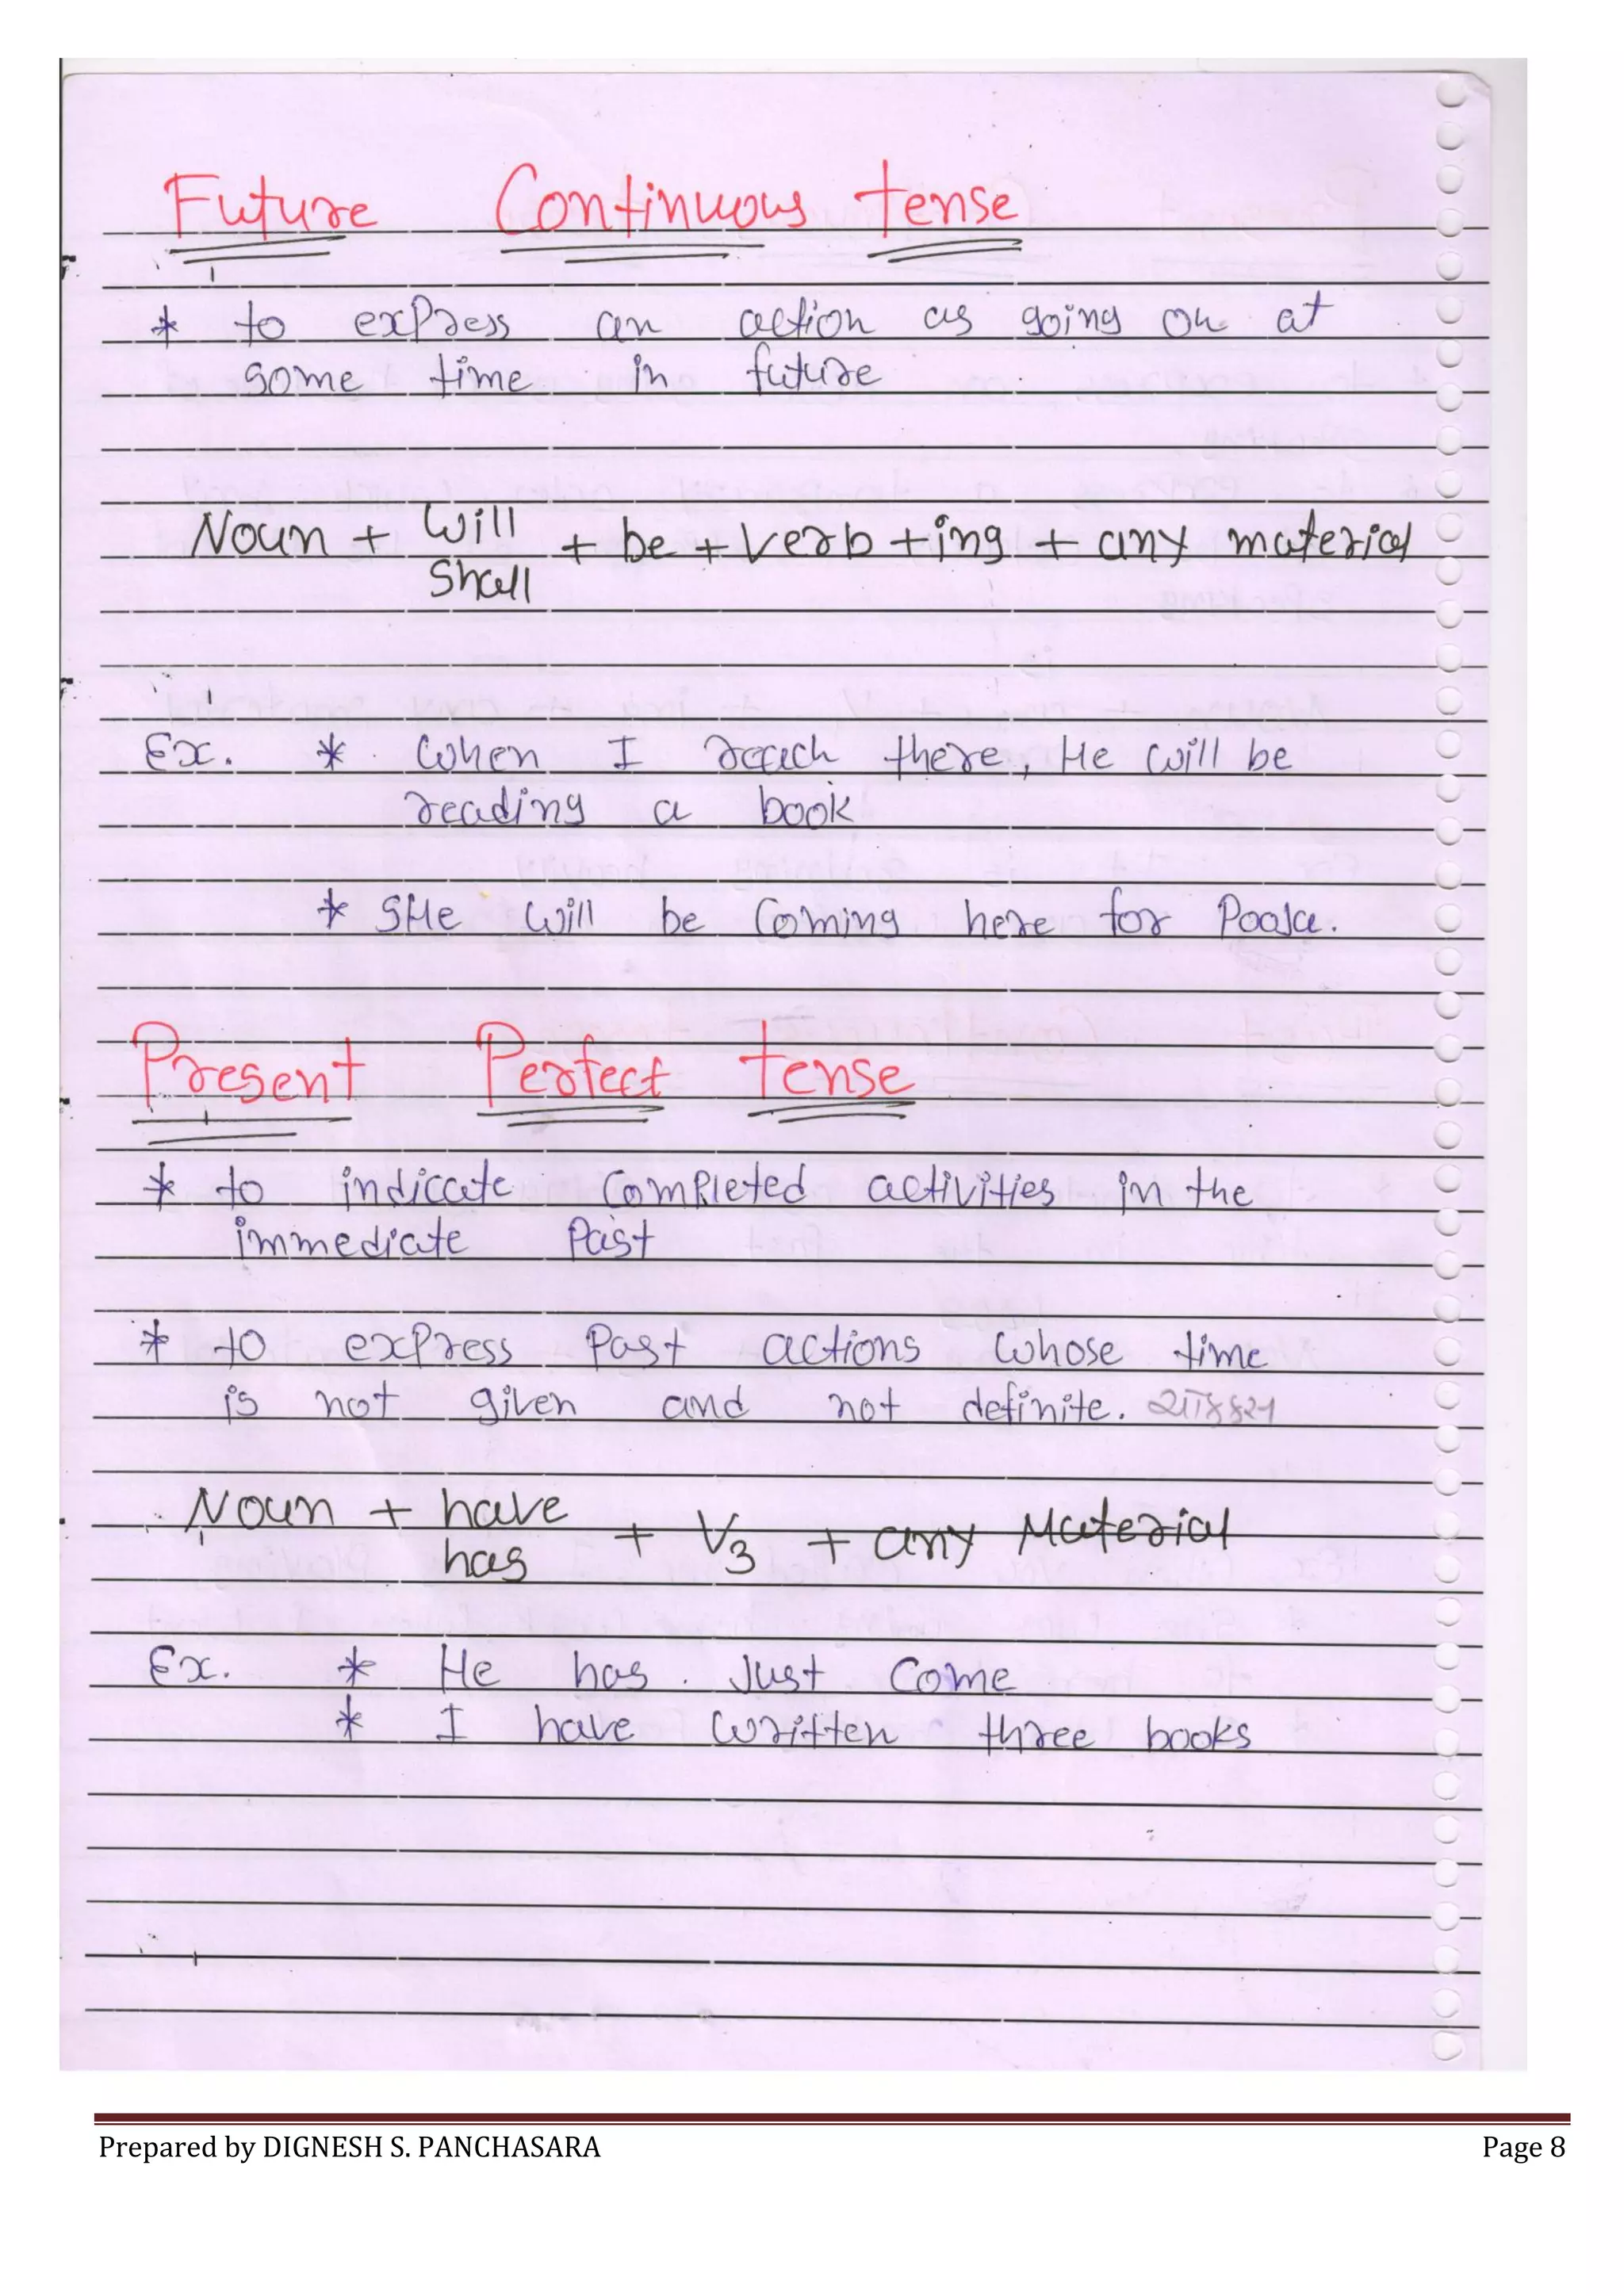 Future Continuous tense
* to express an action as going on at
some time in future
Noun + will + be + Verb + ing + any material
shall
Ex. * When I reach there, He will be
reading a book
* SHe will be Coming here for Pooja.
Present Perfect tense
* to indicate Completed activities in the
immediate Past
* to express Past actions whose time
is not given and not definite.
Noun + have + V3 + any Material
has
Ex. * He has Just Come
* I have written three books
Prepared by DIGNESH S. PANCHASARA Page 8